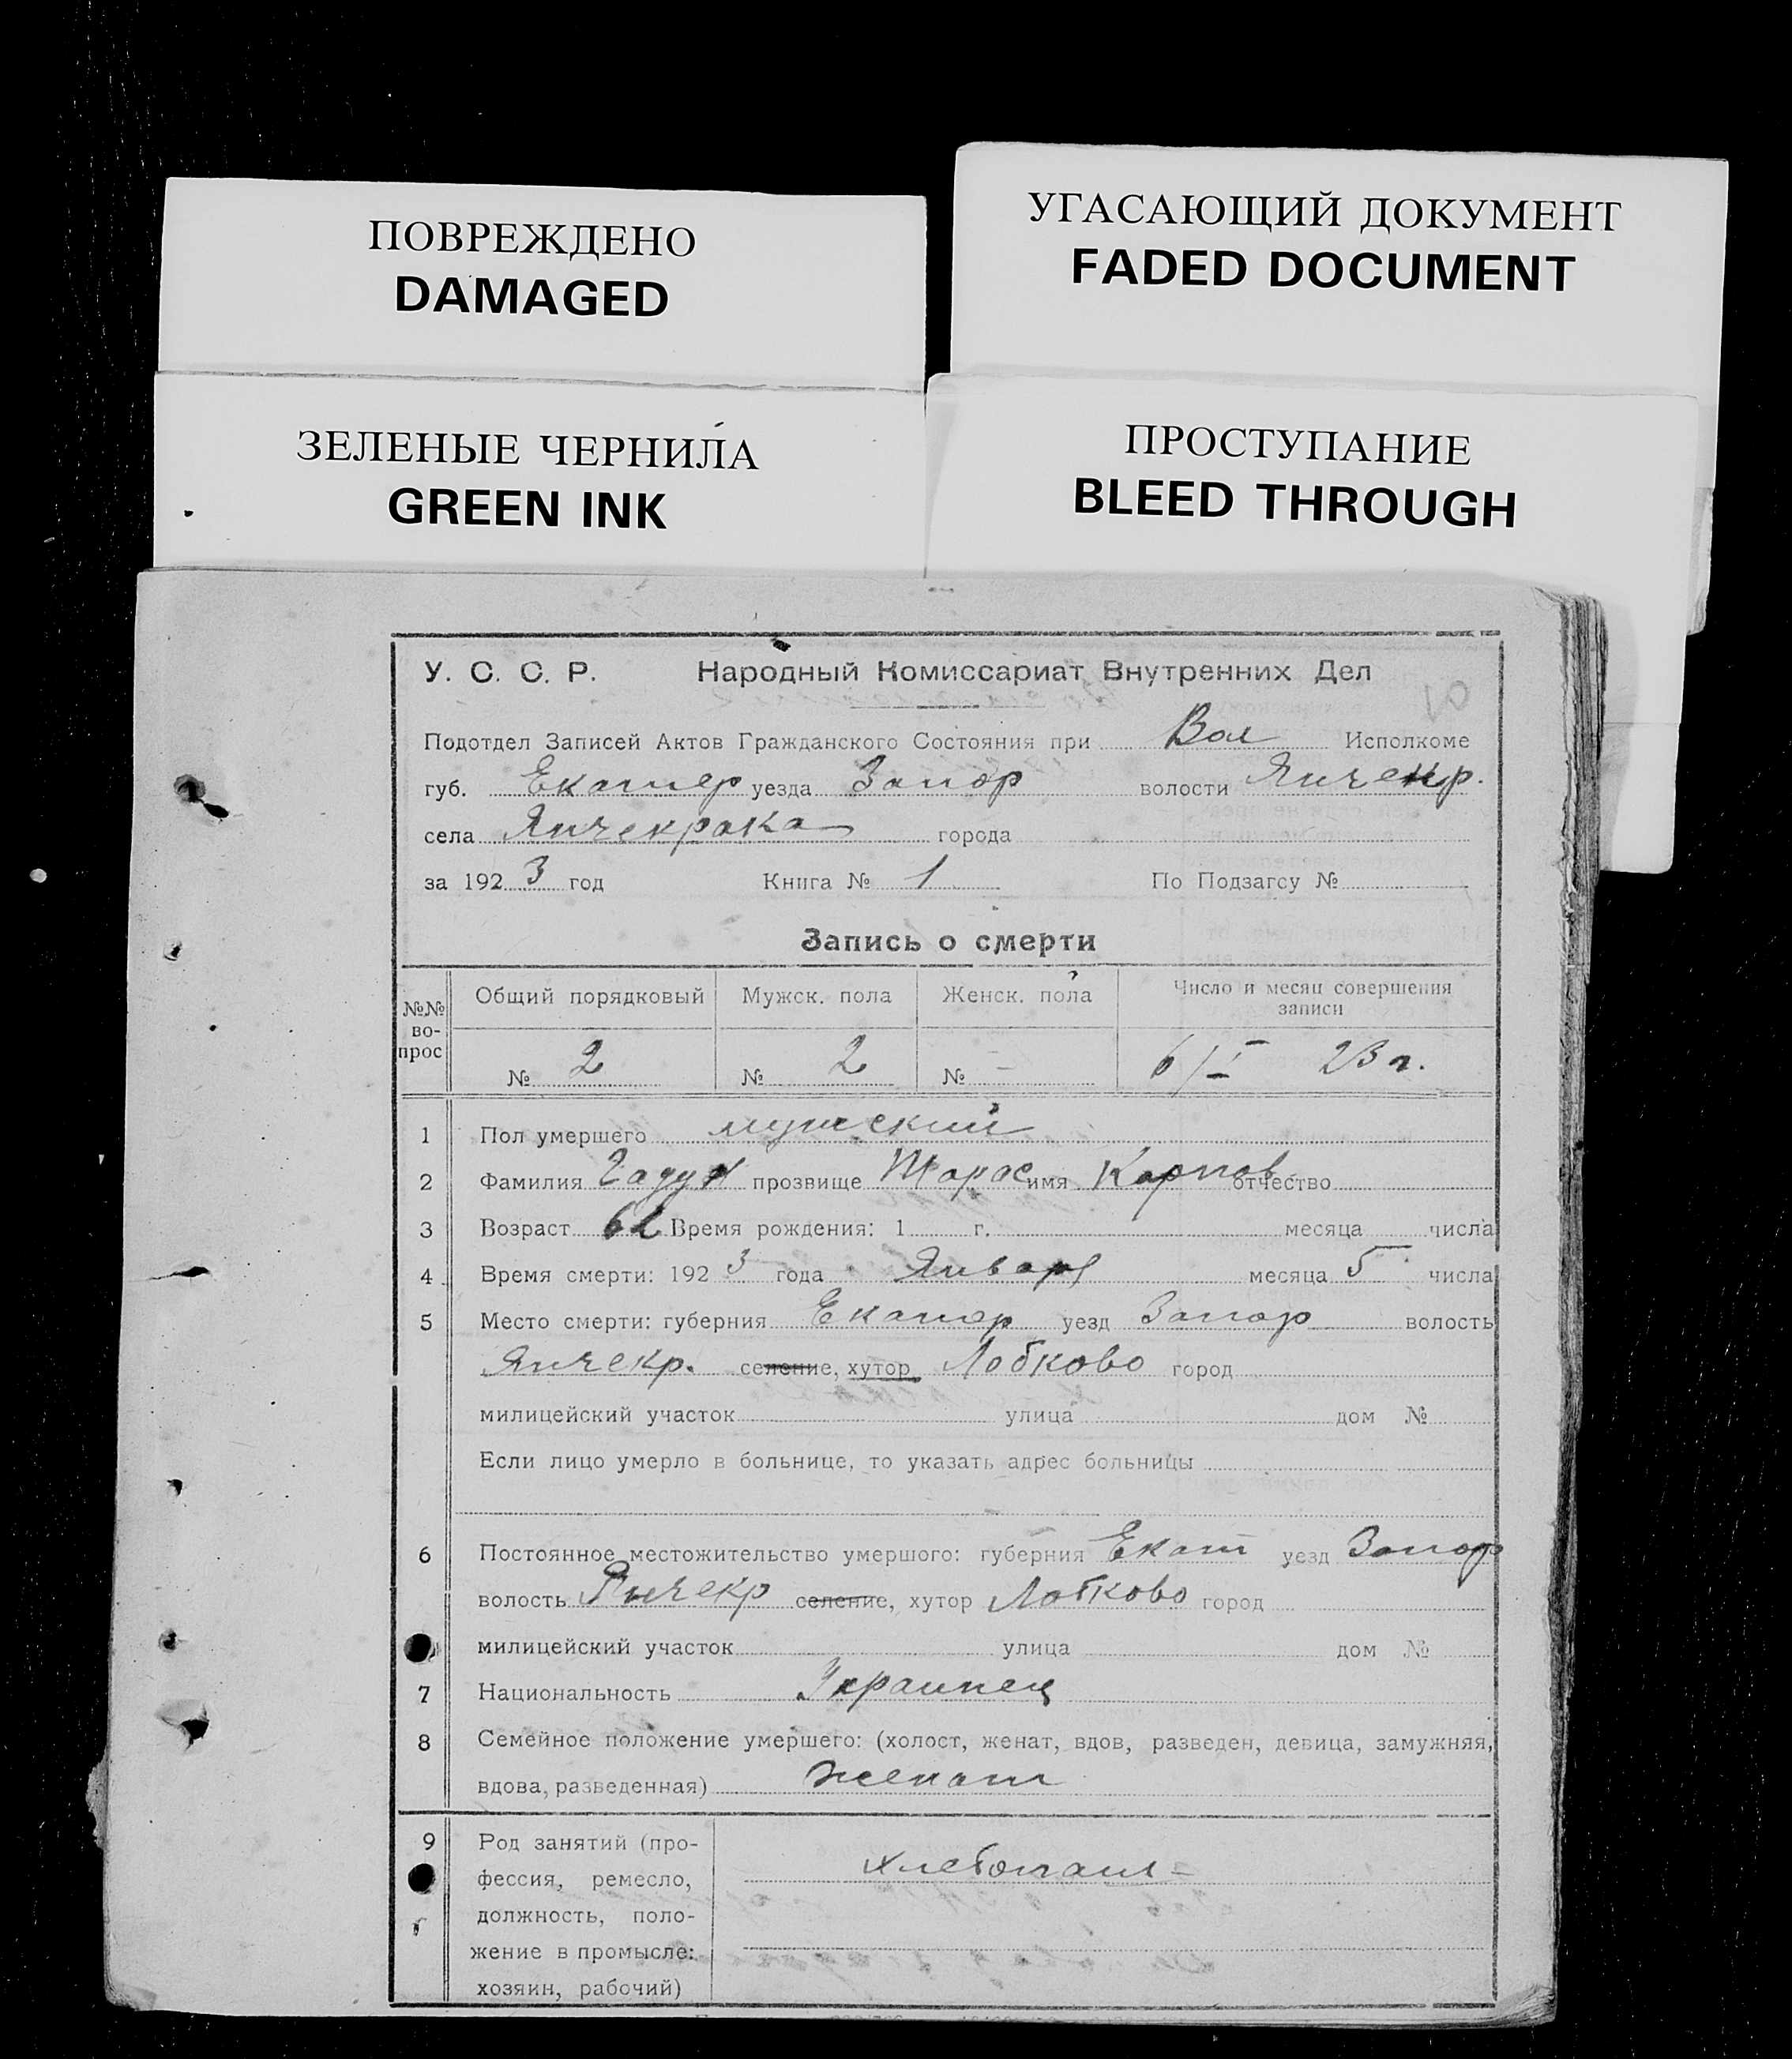 ПОВРЕЖДЕНО
DAMAGED
УГАСАЮЩИЙ ДОКУМЕНТ
FADED DOCUMENT
ЗЕЛЕНЫЕ ЧЕРНИЛА
GREEN INK
ПРОСТУПАНИЕ
BLEED THROUGH
У. С. С. Р. Народный Комиссариат Внутренних Дел
Подотдел Записей Актов Гражданского Состояния при Вол Исполкоме
губ. Екатер уезда Запор волости Янчекр.
села Янчекрака города
за 1923 год Книга № 1 По Подзагсу №
Запись о смерти
№№ во-прос Общий порядковый Мужск. пола Женск. пола Число и месяц совершения записи
№ 2 № 2 № - 6/I 23 г.
1 Пол умершего мужский
2 Фамилия Гадук прозвище Тарас имя Карпов отчество
3 Возраст 62 Время рождения: 1 г. месяца числа
4 Время смерти: 1923 года Январ месяца 5 числа
5 Место смерти: губерния Екатер уезд Запор волость
Янчекр. селение, хутор Лобково город
милицейский участок улица дом №
Если лицо умерло в больнице, то указать адрес больницы
6 Постоянное местожительство умершого: губерния Екат уезд Запор
волость Янчекр селение, хутор Лобково город
милицейский участок улица дом №
7 Национальность Украинец
8 Семейное положение умершего: (холост, женат, вдов, разведен, девица, замужняя,
вдова, разведенная) женат
9 Род занятий (про-
фессия, ремесло, хлебопаш-
должность, поло-
жение в промысле:
хозяин, рабочий)